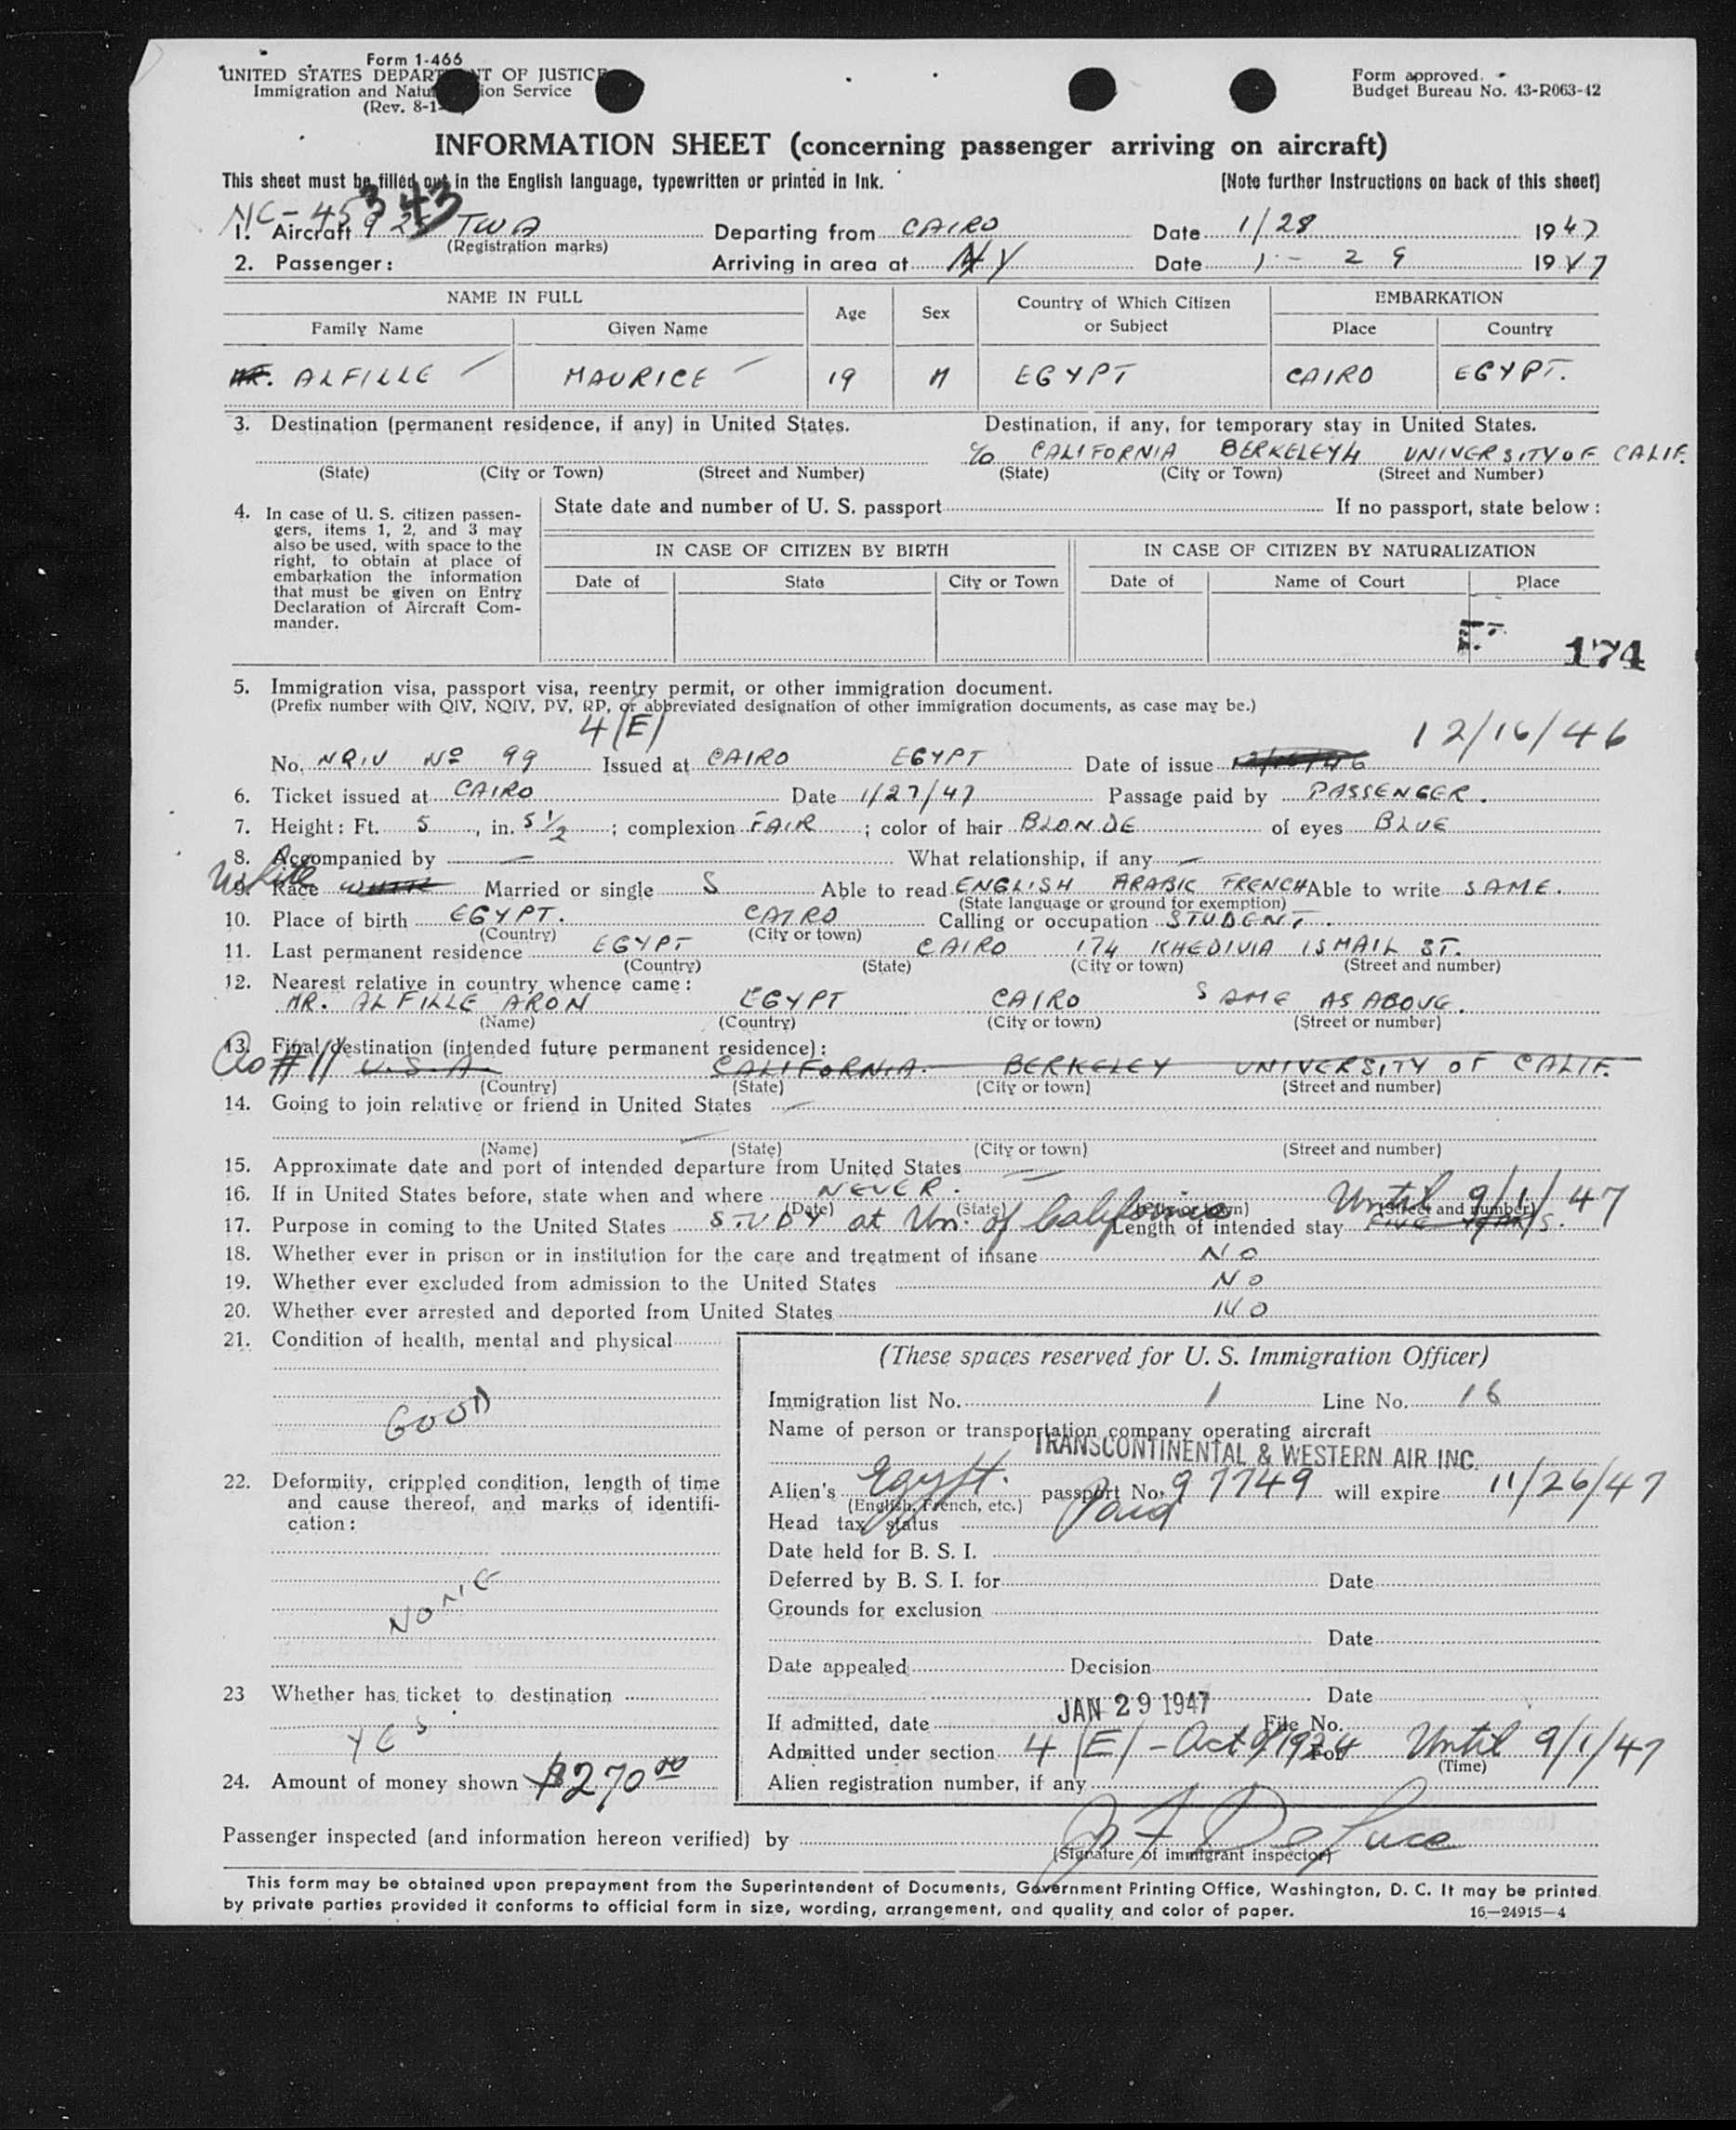 Form 1-466
UNITED STATES DEPART T OF JUSTICE
Immigration and Natu ion Service
(Rev. 8-1-
Form approved.
Budget Bureau No. 43-R063-42
INFORMATION SHEET (concerning passenger arriving on aircraft)
This sheet must be filled out in the English language, typewritten or printed in Ink. (Note further Instructions on back of this sheet)
NC-45 343
1. Aircraft TWA Departing from CAIRO Date 1/28 1947
(Registration marks)
2. Passenger: Arriving in area at NY Date 1-29 1947
NAME IN FULL Age Sex Country of Which Citizen or Subject EMBARKATION
Family Name Given Name Place Country
MR. ALFILLE MAURICE 19 M EGYPT CAIRO EGYPT.
3. Destination (permanent residence, if any) in United States. Destination, if any, for temporary stay in United States.
c/o CALIFORNIA BERKELEY 4 UNIVERSITY OF CALIF.
(State) (City or Town) (Street and Number) (State) (City or Town) (Street and Number)
4. In case of U. S. citizen passen-
gers, items 1, 2, and 3 may
also be used, with space to the
right, to obtain at place of
embarkation the information
that must be given on Entry
Declaration of Aircraft Com-
mander.
State date and number of U. S. passport If no passport, state below:
IN CASE OF CITIZEN BY BIRTH IN CASE OF CITIZEN BY NATURALIZATION
Date of State City or Town Date of Name of Court Place
174
5. Immigration visa, passport visa, reentry permit, or other immigration document.
(Prefix number with QIV, NQIV, PV, RP, or abbreviated designation of other immigration documents, as case may be.)
4(E) 12/16/46
No. NQIV No 99 Issued at CAIRO EGYPT Date of issue
6. Ticket issued at CAIRO Date 1/27/47 Passage paid by PASSENGER.
7. Height: Ft. 5, in. 5 1/2; complexion FAIR; color of hair BLONDE of eyes BLUE
8. Accompanied by — What relationship, if any —
White
9. Race WHITE Married or single S Able to read ENGLISH ARABIC FRENCH Able to write SAME.
(State language or ground for exemption)
10. Place of birth EGYPT. CAIRO Calling or occupation STUDENT.
(Country) (City or town)
11. Last permanent residence EGYPT CAIRO 174 KHEDIVIA ISMAIL ST.
(Country) (State) (City or town) (Street and number)
12. Nearest relative in country whence came:
MR. ALFILLE ARON EGYPT CAIRO SAME AS ABOVE.
(Name) (Country) (City or town) (Street or number)
13. Final destination (intended future permanent residence):
#11 U.S.A. CALIFORNIA. BERKELEY UNIVERSITY OF CALIF.
(Country) (State) (City or town) (Street and number)
14. Going to join relative or friend in United States —
(Name) (State) (City or town) (Street and number)
15. Approximate date and port of intended departure from United States —
16. If in United States before, state when and where NEVER.
(Date) (State) (City or town) (Street and number)
Until 9/1/47
17. Purpose in coming to the United States STUDY at Un. of California Length of intended stay FIVE YEARS.
18. Whether ever in prison or in institution for the care and treatment of insane NO
19. Whether ever excluded from admission to the United States NO
20. Whether ever arrested and deported from United States NO
21. Condition of health, mental and physical
GOOD
22. Deformity, crippled condition, length of time
and cause thereof, and marks of identifi-
cation:
NONE
23 Whether has ticket to destination
YES
24. Amount of money shown $270.00
(These spaces reserved for U. S. Immigration Officer)
Immigration list No. 1 Line No. 16
Name of person or transportation company operating aircraft
TRANSCONTINENTAL & WESTERN AIR INC.
Alien's Egypt. passport No. 97749 will expire 11/26/47
(English, French, etc.)
Head tax status Paid
Date held for B. S. I.
Deferred by B. S. I. for Date
Grounds for exclusion
Date
Date appealed Decision
Date
If admitted, date JAN 29 1947 File No.
Admitted under section 4(E) - Act of 1924 For Until 9/1/47
(Time)
Alien registration number, if any
Passenger inspected (and information hereon verified) by
(Signature of immigrant inspector)
This form may be obtained upon prepayment from the Superintendent of Documents, Government Printing Office, Washington, D. C. It may be printed
by private parties provided it conforms to official form in size, wording, arrangement, and quality and color of paper. 16—24915-4